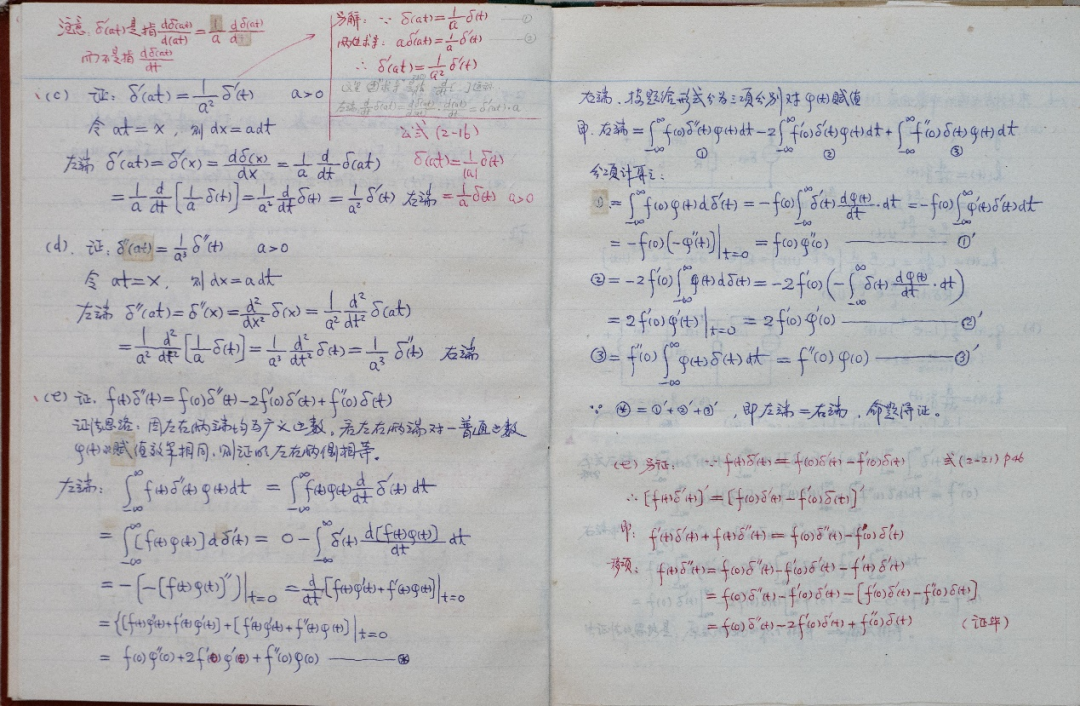 注意: δ′(at)是指 dδ(at)/d(at) = 1/a dδ(at)/dt
而不是指 dδ(at)/dt
另解: ∵ δ(at)=1/a δ(t) ——①
两边求导: aδ′(at)=1/a δ′(t) ——②
∴ δ′(at)=1/a² δ′(t)
公式(2-16)
δ(at)=1/|a| δ(t)
=1/a δ(t) a>0
(c) 证: δ′(at)=1/a² δ′(t) a>0
令 at=x, 则 dx=adt
左端 δ′(at)=δ′(x)=dδ(x)/dx=1/a d/dt δ(at)
=1/a d/dt[1/a δ(t)]=1/a² d/dt δ(t)=1/a² δ′(t) 右端
(d). 证: δ″(at)=1/a³ δ″(t) a>0
令 at=x, 则 dx=adt
左端 δ″(at)=δ″(x)=d²/dx² δ(x)=1/a² d²/dt² δ(at)
=1/a² d²/dt²[1/a δ(t)]=1/a³ d²/dt² δ(t)=1/a³ δ″(t) 右端
(e) 证. f(t)δ″(t)=f(0)δ″(t)-2f′(0)δ′(t)+f″(0)δ(t)
证法思路: 因左右两端均为广义函数, 若左右两端对一普通函数
φ(t)的赋值效果相同, 则证明左右两侧相等。
左端: ∫_{-∞}^{∞} f(t)δ″(t)φ(t)dt = ∫_{-∞}^{∞} f(t)φ(t) d/dt δ′(t) dt
= ∫_{-∞}^{∞} [f(t)φ(t)]dδ′(t) = 0-∫_{-∞}^{∞} δ′(t) d[f(t)φ(t)]/dt dt
= -(-[f(t)φ(t)]″)|t=0 = d/dt[f(t)φ′(t)+f′(t)φ(t)]|t=0
={[f(t)φ″(t)+f′(t)φ′(t)]+[f′(t)φ′(t)+f″(t)φ(t)]|t=0
= f(0)φ″(0)+2f′(0)φ′(0)+f″(0)φ(0) ——⊛
右端. 按题给形式分为三项分别对φ(t)赋值
即. 右端=∫_{-∞}^{∞} f(0)δ″(t)φ(t)dt-2∫_{-∞}^{∞} f′(0)δ′(t)φ(t)dt+∫_{-∞}^{∞} f″(0)δ(t)φ(t)dt
① ② ③
分项计算之:
①=∫_{-∞}^{∞} f(0)φ(t)dδ′(t)=-f(0)∫_{-∞}^{∞} δ′(t) dφ(t)/dt·dt=-f(0)∫_{-∞}^{∞} φ′(t)δ′(t)dt
=-f(0)(-φ″(t))|t=0=f(0)φ″(0) ——①′
②=-2f′(0)∫_{-∞}^{∞} φ(t)dδ(t)=-2f′(0)(-∫_{-∞}^{∞} δ(t) dφ(t)/dt·dt)
=2f′(0)φ′(t)|t=0=2f′(0)φ′(0) ——②′
③=f″(0)∫_{-∞}^{∞} φ(t)δ(t)dt=f″(0)φ(0) ——③′
∵ ⊛=①′+②′+③′, 即左端=右端, 命题得证。
(e) 另证: ∵ f(t)δ′(t)=f(0)δ′(t)-f′(0)δ(t) 式(2-21) P46
∴ [f(t)δ′(t)]′=[f(0)δ′(t)-f′(0)δ(t)]′
即: f′(t)δ′(t)+f(t)δ″(t)=f(0)δ″(t)-f′(0)δ′(t)
移项: f(t)δ″(t)=f(0)δ″(t)-f′(0)δ′(t)-f′(t)δ′(t)
=f(0)δ″(t)-f′(0)δ′(t)-[f′(0)δ′(t)-f″(0)δ(t)]
=f(0)δ″(t)-2f′(0)δ′(t)+f″(0)δ(t) (证毕)